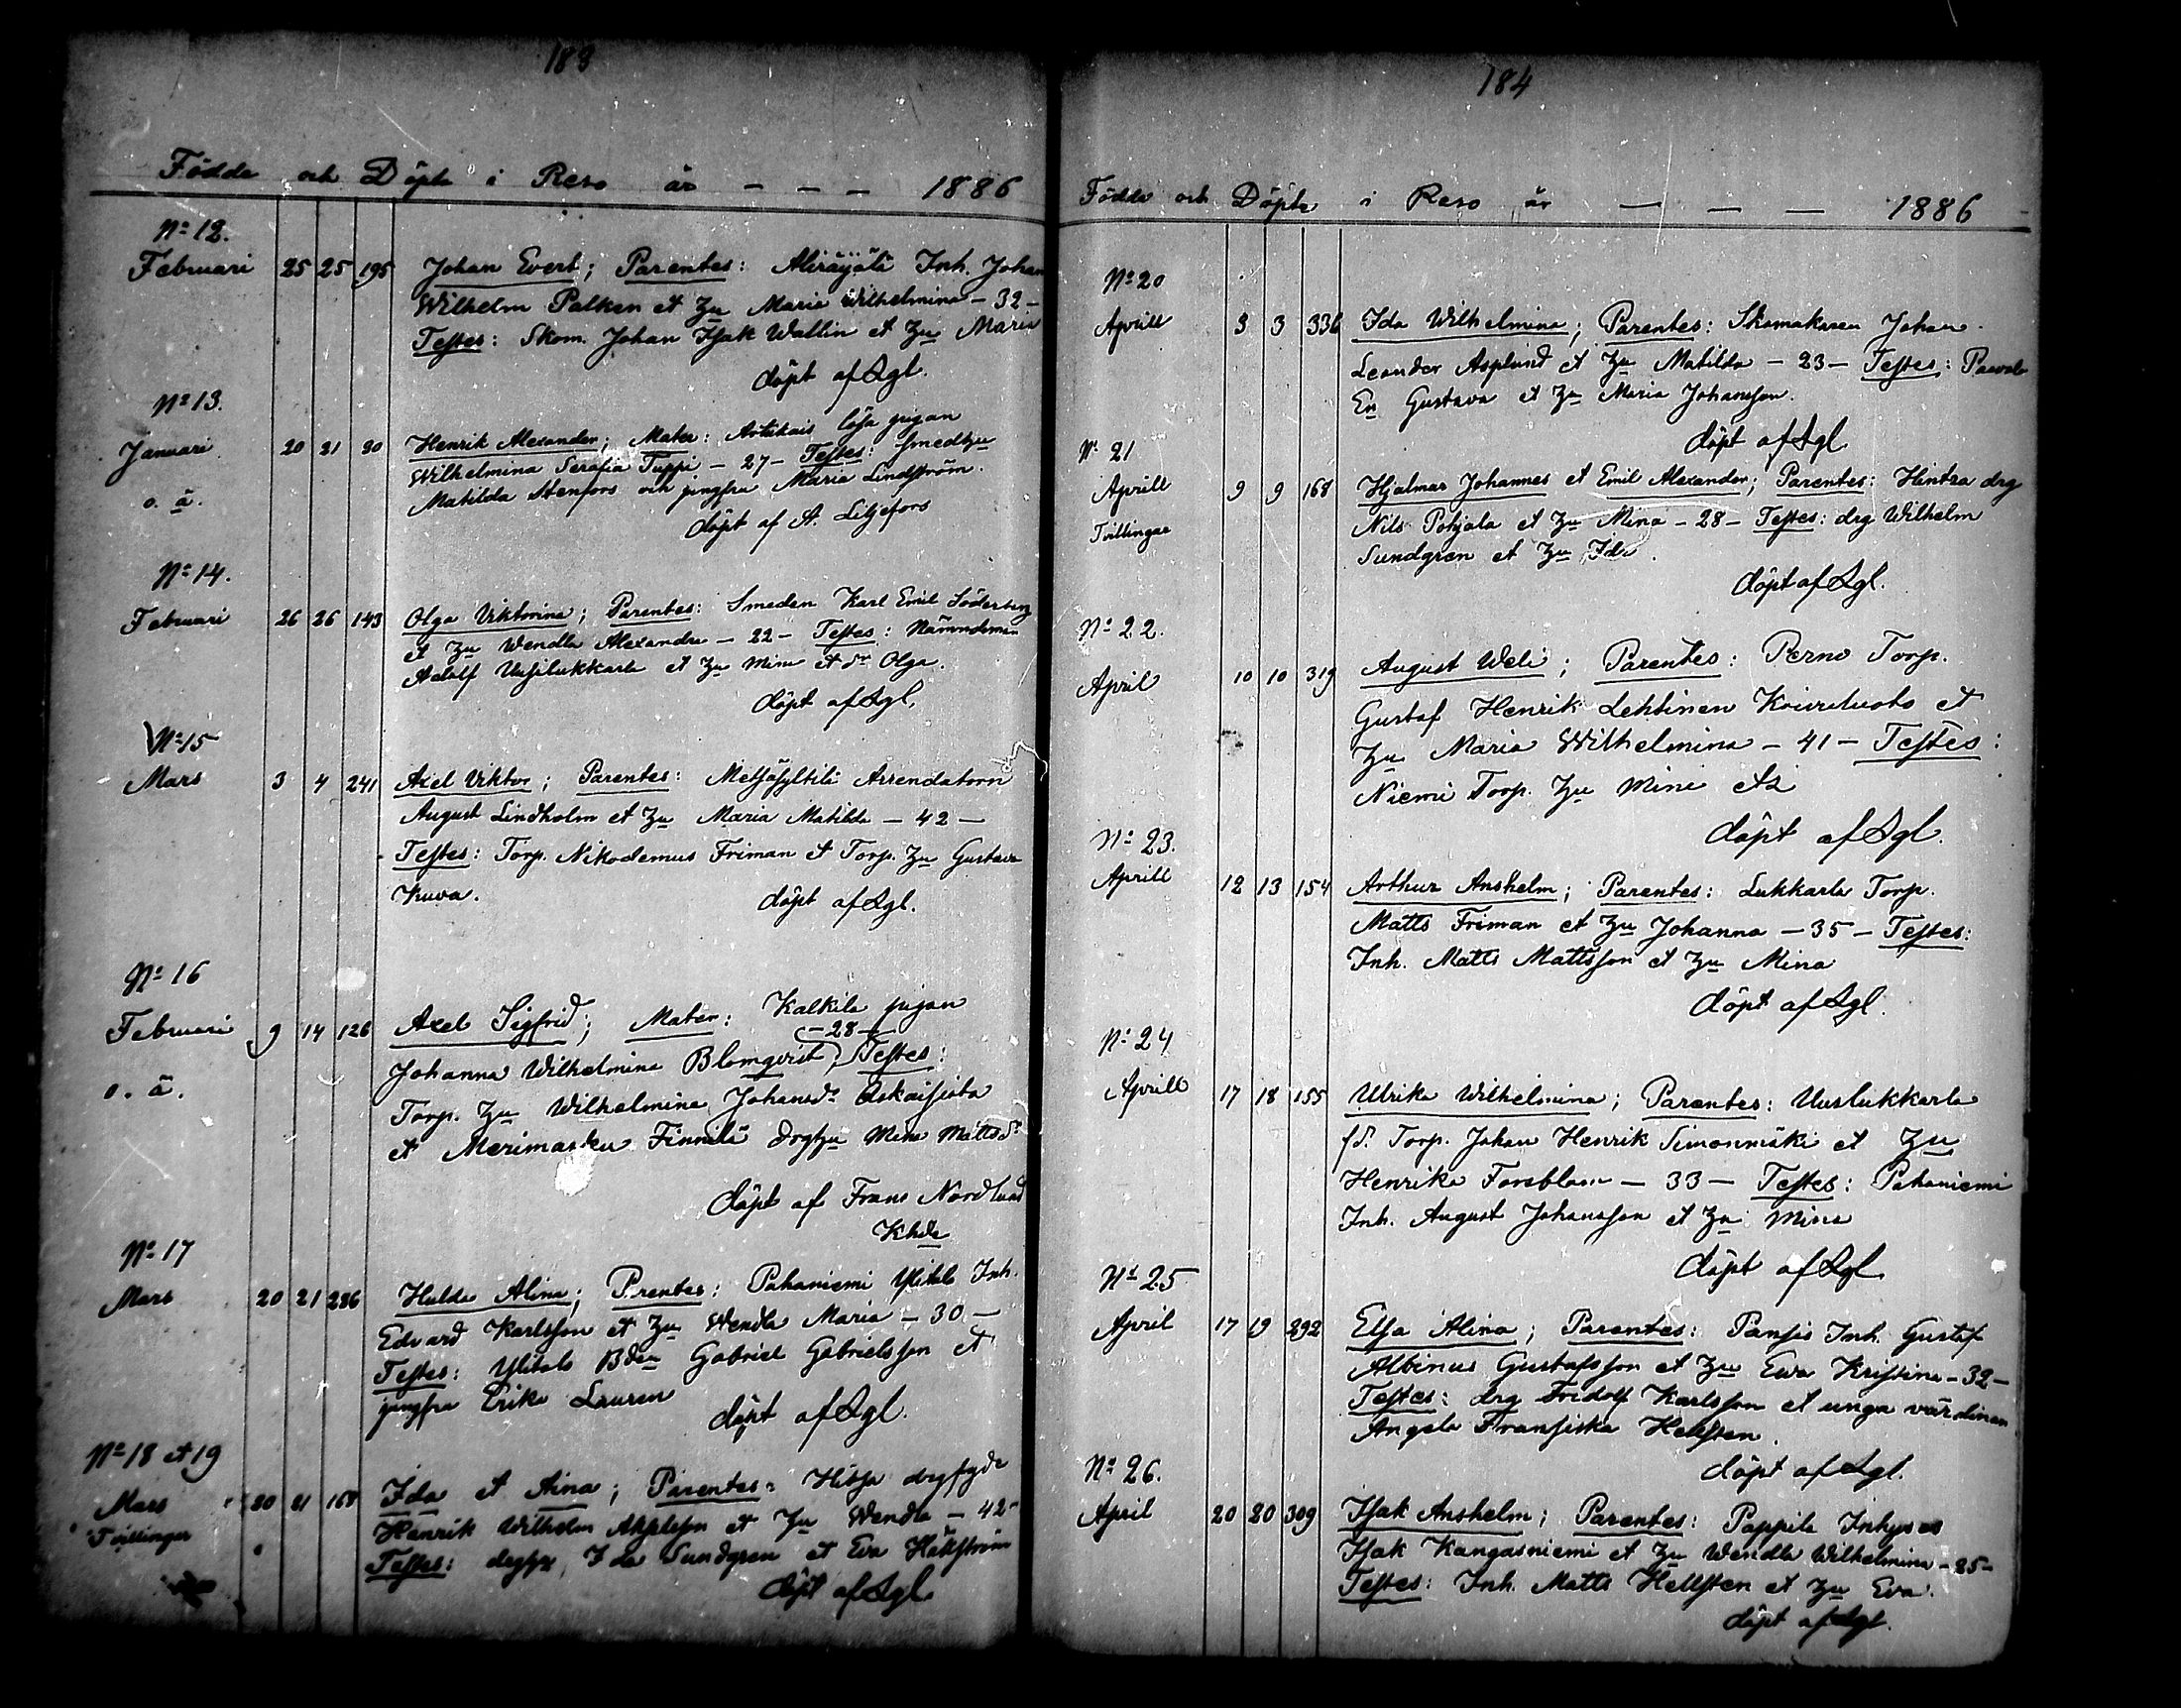 183
Födda och Döpta i Reso år - - - 1886
No 12.
Februari 25 25 195 Johan Evert; Parentes: Aliräyälä Inh. Johan
Wilhelm Palken et Hu Maria Wilhelmina - 32 -
Testes: Skom. Johan Isak Wallin et Hu Maria
döpt af Lgl.
No 13.
Januari 20 21 90 Henrik Alexander; Mater: Artukais lösa pigan
o. ä. Wilhelmina Serafia Tuppi - 27 - Testes: Smedhu
Matilda Stenfors och jungfru Maria Lindström.
döpt af A. Liljefors
No 14.
Februari 26 26 143 Olga Viktorina; Parentes: Smeden Karl Emil Söderberg
et Hu Wendla Alexandra - 22 - Testes: Nämndeman
Adolf Uusilukkarla et Hu Mina et dr Olga.
döpt af Lgl.
No 15
Mars 3 4 241 Axel Viktor; Parentes: Metsäkyltilä Arrendatorn
August Lindholm et Hu Maria Matilda - 42 -
Testes: Torp. Nikodemus Friman et Torp. Hu Gustava
Kuva. döpt af Lgl.
No 16
Februari 9 14 126 Axel Sigfrid; Mater: Kalkila pigan
- 28 -
o. ä. Johanna Wilhelmina Blomqvist, Testes:
Torp. Hu Wilhelmina Johansdr Askaisista
et Merimasku Finnilä drghu Mina Mattsdr
döpt af Frans Nordlund
Khde
No 17
Mars 20 21 286 Hulda Alina; Parentes: Pahaniemi Ylitalo Inh.
Edvard Karlsson et Hu Wendla Maria - 30 -
Testes: Ylitalo Bden Gabriel Gabrielsson et
jungfru Erika Lauren
döpt af Lgl.
No 18 et 19
Mars 20 21 168 Ida et Aina; Parentes: dry
Tvillingar Henrik Wilhelm et Hu Wendla - 42 -
Testes: drghu Ida Sundgren et Eva Hällström
döpt af Lgl.
184
Födda och Döpta i Reso år - - - 1886
No 20
Aprill 3 3 336 Ida Wilhelmina; Parentes: Skomakaren Johan
Leander Asplund et Hu Matilda - 23 - Testes: Paavola
En Gustava et Hu Maria Johansson.
döpt af Lgl
No 21
Aprill 9 9 168 Hjalmar Johannes et Emil Alexander; Parentes: Hintza drg
Tvillingar Nils Pohjala et Hu Mina - 28 - Testes: drg Wilhelm
Sundgren et Hu Ida.
döpt af Lgl.
No 22.
April 10 10 319 August Weli; Parentes: Perno Torp.
Gustaf Henrik Lehtinen Koivuluoto et
Hu Maria Wilhelmina - 41 - Testes:
Niemi Torp. Hu Mina
döpt af Lgl.
No 23.
Aprill 12 13 154 Arthur Anshelm; Parentes: Lukkarla Torp.
Matts Friman et Hu Johanna - 35 - Testes:
Inh. Matts Mattsson et Hu Mina
döpt af Lgl.
No 24
Aprill 17 18 155 Ulrika Wilhelmina; Parentes: Uuslukkarla
fd. Torp. Johan Henrik Simonmäki et Hu
Henrika Forsblom - 33 - Testes: Pahaniemi
Inh. August Johansson et Hu Mina
döpt af Lgl
No 25
April 17 19 292 Elsa Alina; Parentes: Pansio Inh. Gustaf
Albinus Gustafsson et Hu Ewa Kristina - 32 -
Testes: drg Fridolf Karlsson et unga värdinan
Angela Fransiska Hellsten.
döpt af Lgl.
No 26.
April 20 20 309 Isak Anshelm; Parentes: Pappila Inhyses
Isak Kangasniemi et Hu Wendla Wilhelmina - 25 -
Testes: Inh. Matts Hellsten et Hu Eva.
döpt af Lgl.